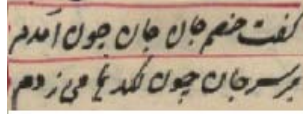 گفت خصم جان جان چون آمدم
بر سر جان چون لکدها می زدم